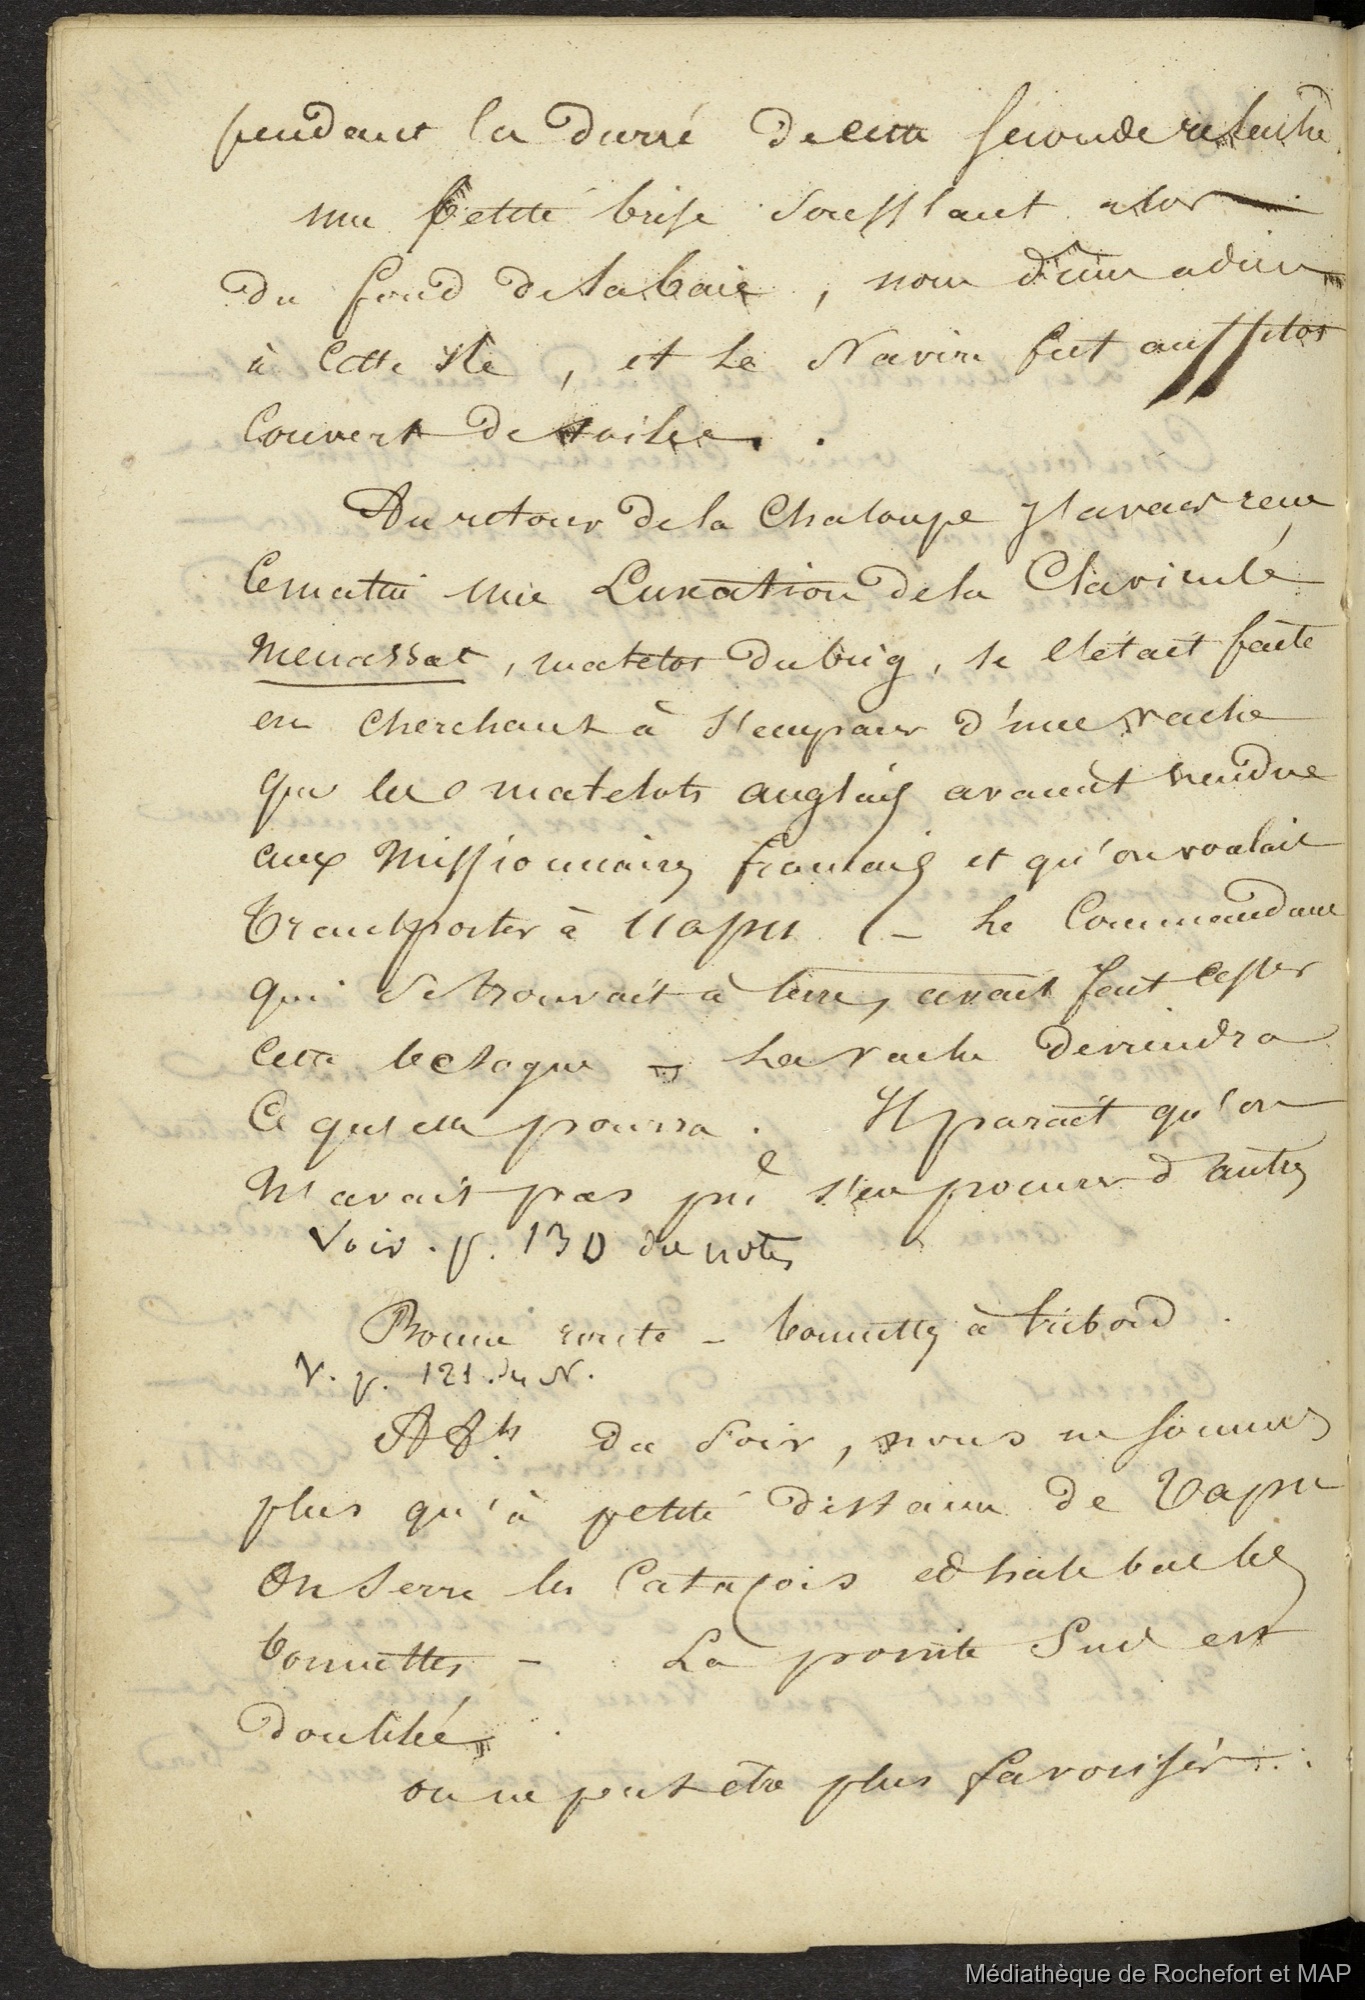 pendant la durée de cette seconde relache.
une petite brise soufflant alors
du fond de la baie, nous dîmes adieu
à cette île, et le Navire fut aussitot
couvert de voiles.
Au retour de la Chaloupe
ce matin une Luxation de la Clavicule
Menassat, matelot du brig, se l'était faite
en cherchant à s'emparer d'une vache
que les matelots anglais avaient vendue
aux Missionnaires français et qu'on voulait
transporter à Uapu (- Le Commandant
qui se trouvait à terre, avait fait cesser
cette besogne - La vache deviendra
ce qu'elle pourra. Il parait qu'on
n'avait pas pu s'en procurer d'autres
Voir. p. 130 des notes
Bonne route - bonnettes à tribord.
V. p. 121. des N.
A 8h du soir, nous ne sommes
plus qu'à petite distance de Uapu
On serre les Catacois et hale bas les
bonnettes - La pointe Sud est
doublée.
on ne peut être plus favorisé...
Médiathèque de Rochefort et MAP